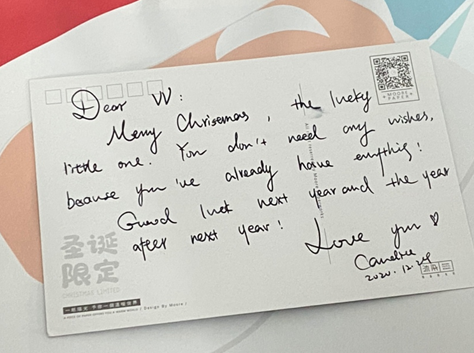 Dear W:
Merry Christmas, the lucky
little one. You don't need any wishes,
because you've already have enything!
Guood luck next year and the year
after next year!
Love you ♡
2020.12.24
MOORE
PAPER
圣诞
限定
CHRISTMAS LIMITED